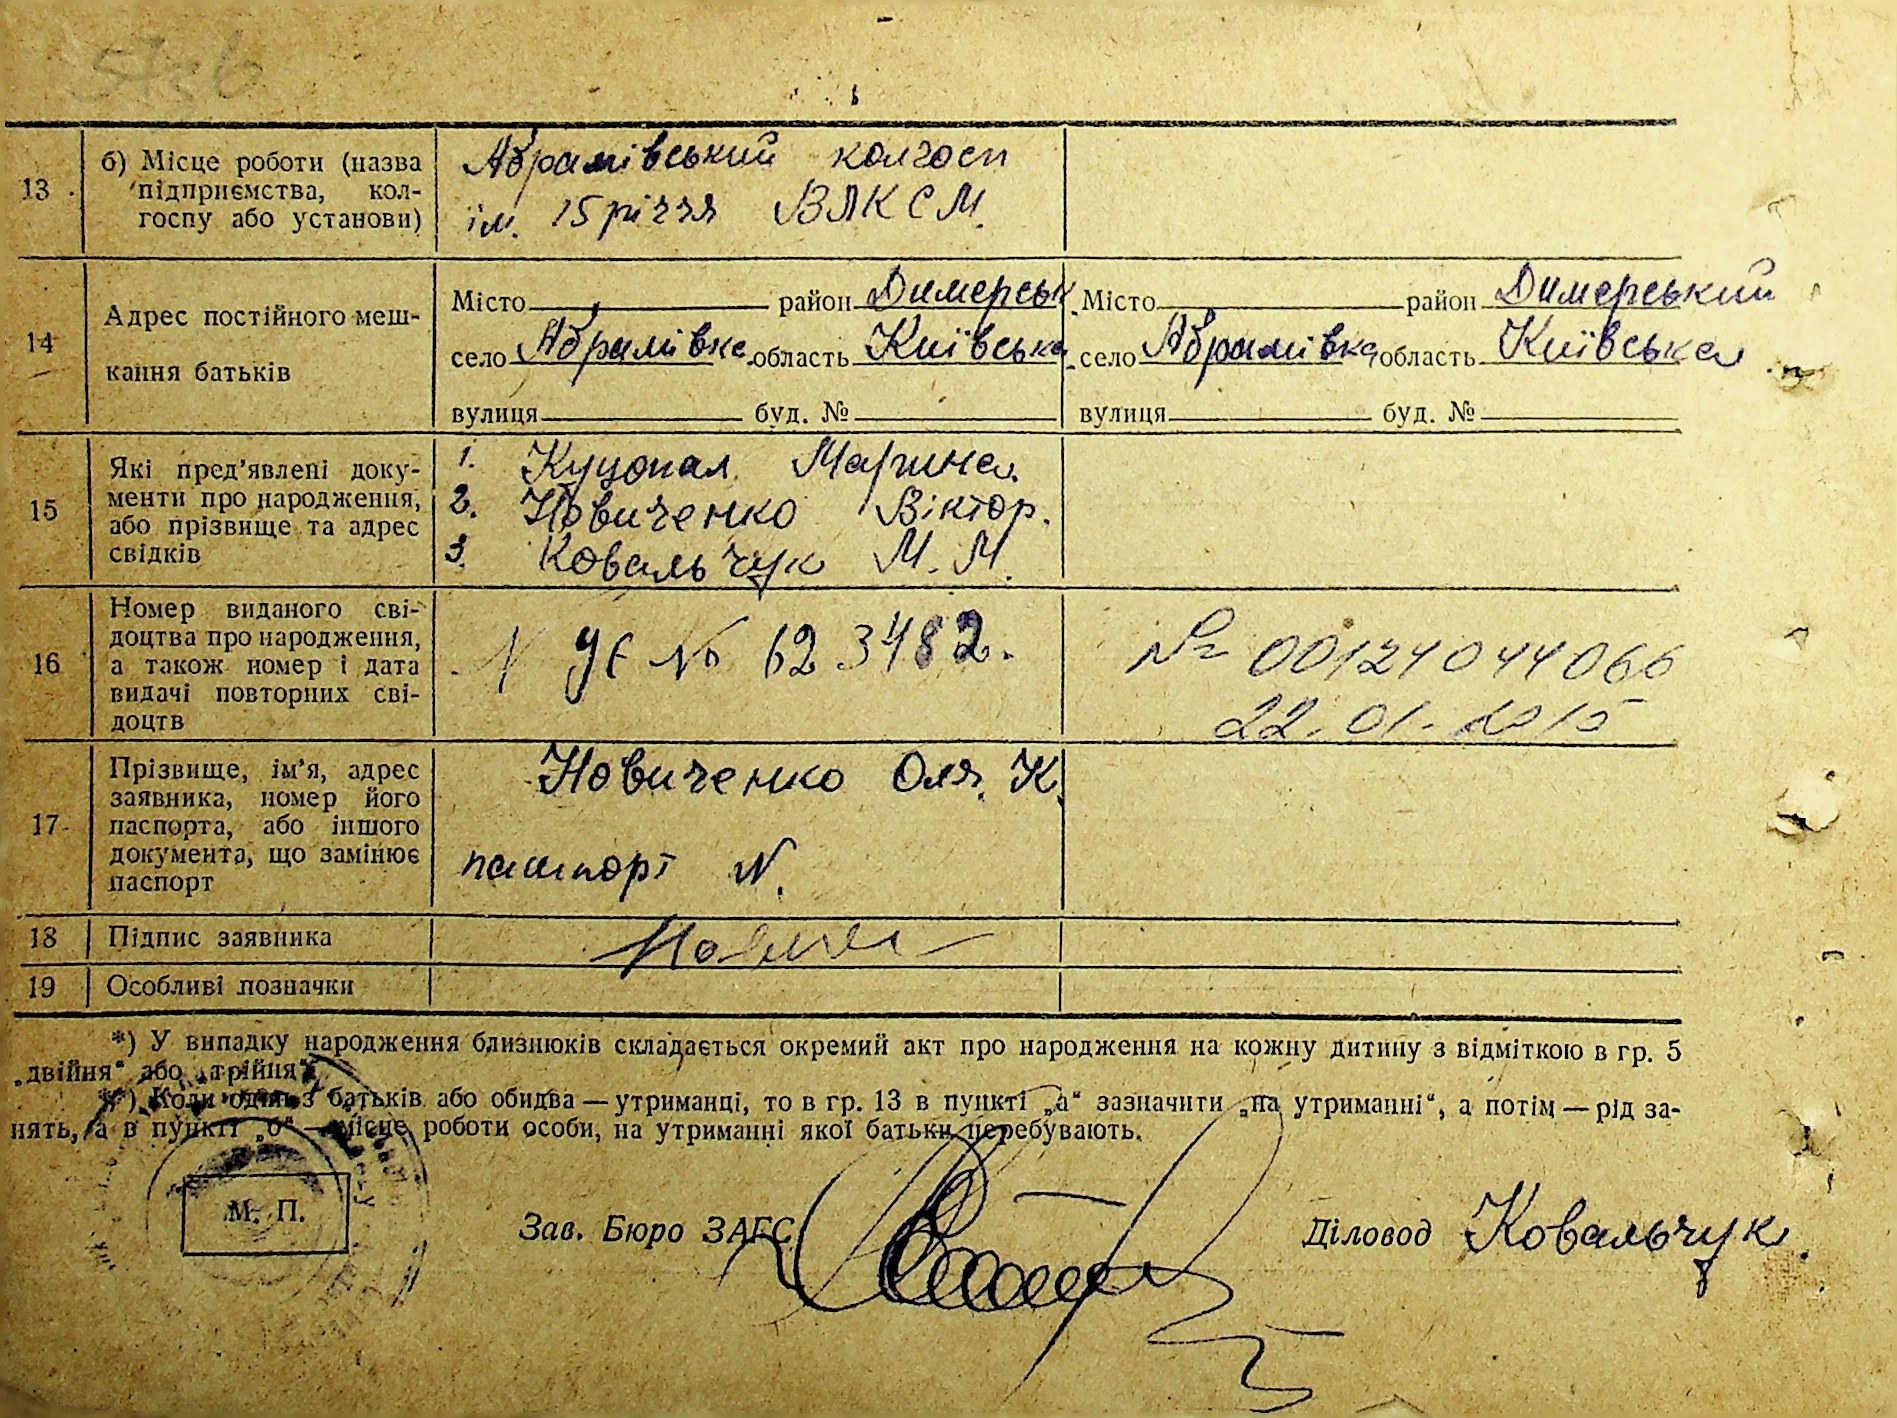 13
б) Місце роботи (назва
підприємства, кол-
госпу або установи)
Абрамівський колгосп
ім. 15 річчя ВЛКСМ.
14
Адрес постійного меш-
кання батьків
Місто район Димерськ
село Абрамівка область Київська
вулиця буд. №
Місто район Димерський
село Абрамівка область Київська
вулиця буд. №
15
Які пред'явлені доку-
менти про народження,
або прізвище та адрес
свідків
1. Куцопал Марина.
2. Новиченко Віктор.
3. Ковальчук М. М.
16
Номер виданого сві-
доцтва про народження,
а також номер і дата
видачі повторних сві-
доцтв
N УЄ № 623482.
№ 00124044066
22.01.2015
17
Прізвище, ім'я, адрес
заявника, номер його
паспорта, або іншого
документа, що замінює
паспорт
Новиченко Оля. К.
пашпорт N.
18
Підпис заявника
19
Особливі позначки
*) У випадку народження близнюків складається окремий акт про народження на кожну дитину з відміткою в гр. 5
„двійня“ або „трійня“.
**) Коли один з батьків або обидва — утриманці, то в гр. 13 в пункті „а“ зазначити „на утриманні“, а потім — рід за-
нять, а в пункті „б“ — місце роботи особи, на утриманні якої батьки перебувають.
М. П.
Зав. Бюро ЗАГС
Діловод Ковальчук.